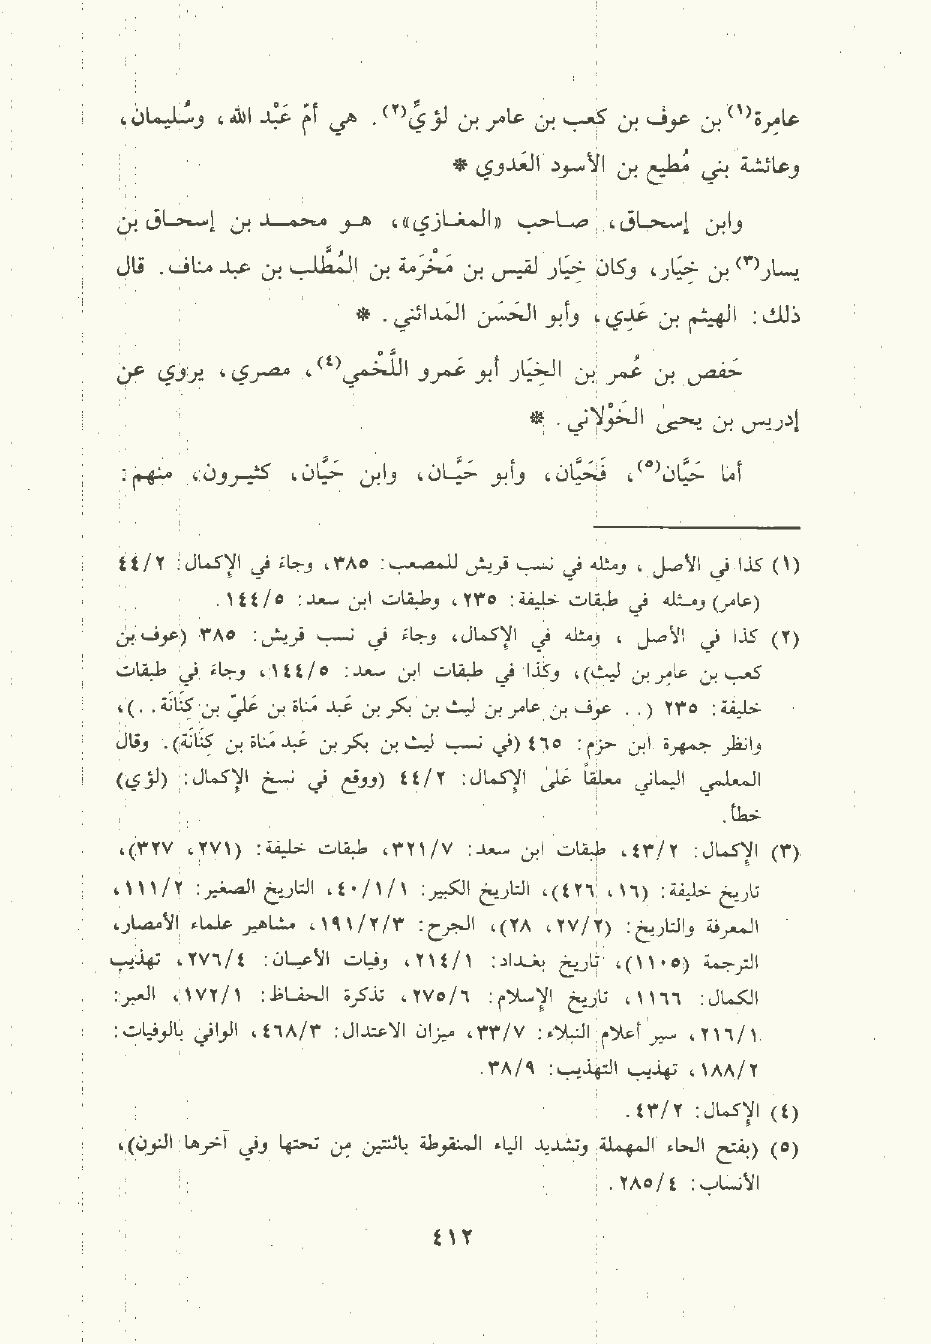 عامِرة(١) بن عوف بن كعب بن عامر بن لؤيٍّ(٢). هي أمّ عَبْد الله، وسُليمان،
وعائشة بني مُطيع بن الأسود العَدوي *
وابن إسحاق، صاحب «المغازي»، هو محمد بن إسحاق بن
يسار(٣) بن خِيَار، وكان خِيَار لقيس بن مَخْرَمة بن المُطَّلب بن عبد مناف. قال
ذلك: الهيثم بن عَدِي، وأبو الحَسَن المَدائني. *
حَفص بن عُمر بن الخِيَار أبو عَمرو اللَّخْمي(٤)، مصري، يروي عن
إدريس بن يحيىٰ الخَوْلاني. *
أما حَيَّان(٥)، فَحَيَّان، وأبو حَيَّان، وابن حَيَّان، كثيرون، منهم:
(١) كذا في الأصل، ومثله في نسب قريش للمصعب: ٣٨٥، وجاء في الإكمال: ٤٤/٢
(عامر) ومثله في طبقات خليفة: ٢٣٥، وطبقات ابن سعد: ١٤٤/٥.
(٢) كذا في الأصل، ومثله في الإكمال، وجاء في نسب قريش: ٣٨٥ (عوف بن
كعب بن عامر بن ليث)، وكذا في طبقات ابن سعد: ١٤٤/٥، وجاء في طبقات
خليفة: ٢٣٥ (.. عوف بن عامر بن ليث بن بكر بن عَبد مَناة بن عَليّ بن كِنَانَة..)،
وانظر جمهرة ابن حزم: ٤٦٥ (في نسب ليث بن بكر بن عَبد مَناة بن كِنَانَة). وقال
المعلمي اليماني معلقاً عَلىٰ الإكمال: ٤٤/٢ (ووقع في نسخ الإكمال: (لؤي)
خطأ.
(٣) الإكمال: ٤٣/٢، طبقات ابن سعد: ٣٢١/٧، طبقات خليفة: (٢٧١، ٣٢٧)،
تاريخ خليفة: (١٦، ٤٢٦)، التاريخ الكبير: ٤٠/١/١، التاريخ الصغير: ١١١/٢،
المعرفة والتاريخ: (٢٧/٢، ٢٨)، الجرح: ١٩١/٢/٣، مشاهير علماء الأمصار،
الترجمة (١١٠٥)، تاريخ بغداد: ٢١٤/١، وفيات الأعيان: ٢٧٦/٤، تهذيب
الكمال: ١١٦٦، تاريخ الإسلام: ٢٧٥/٦، تذكرة الحفاظ: ١٧٢/١، العبر:
٢١٦/١، سير أعلام النبلاء: ٣٣/٧، ميزان الاعتدال: ٤٦٨/٣، الوافي بالوفيات:
١٨٨/٢، تهذيب التهذيب: ٣٨/٩.
(٤) الإكمال: ٤٣/٢.
(٥) (بفتح الحاء المهملة وتشديد الياء المنقوطة باثنتين مِن تحتها وفي آخرها النون)،
الأنساب: ٢٨٥/٤.
٤١٢